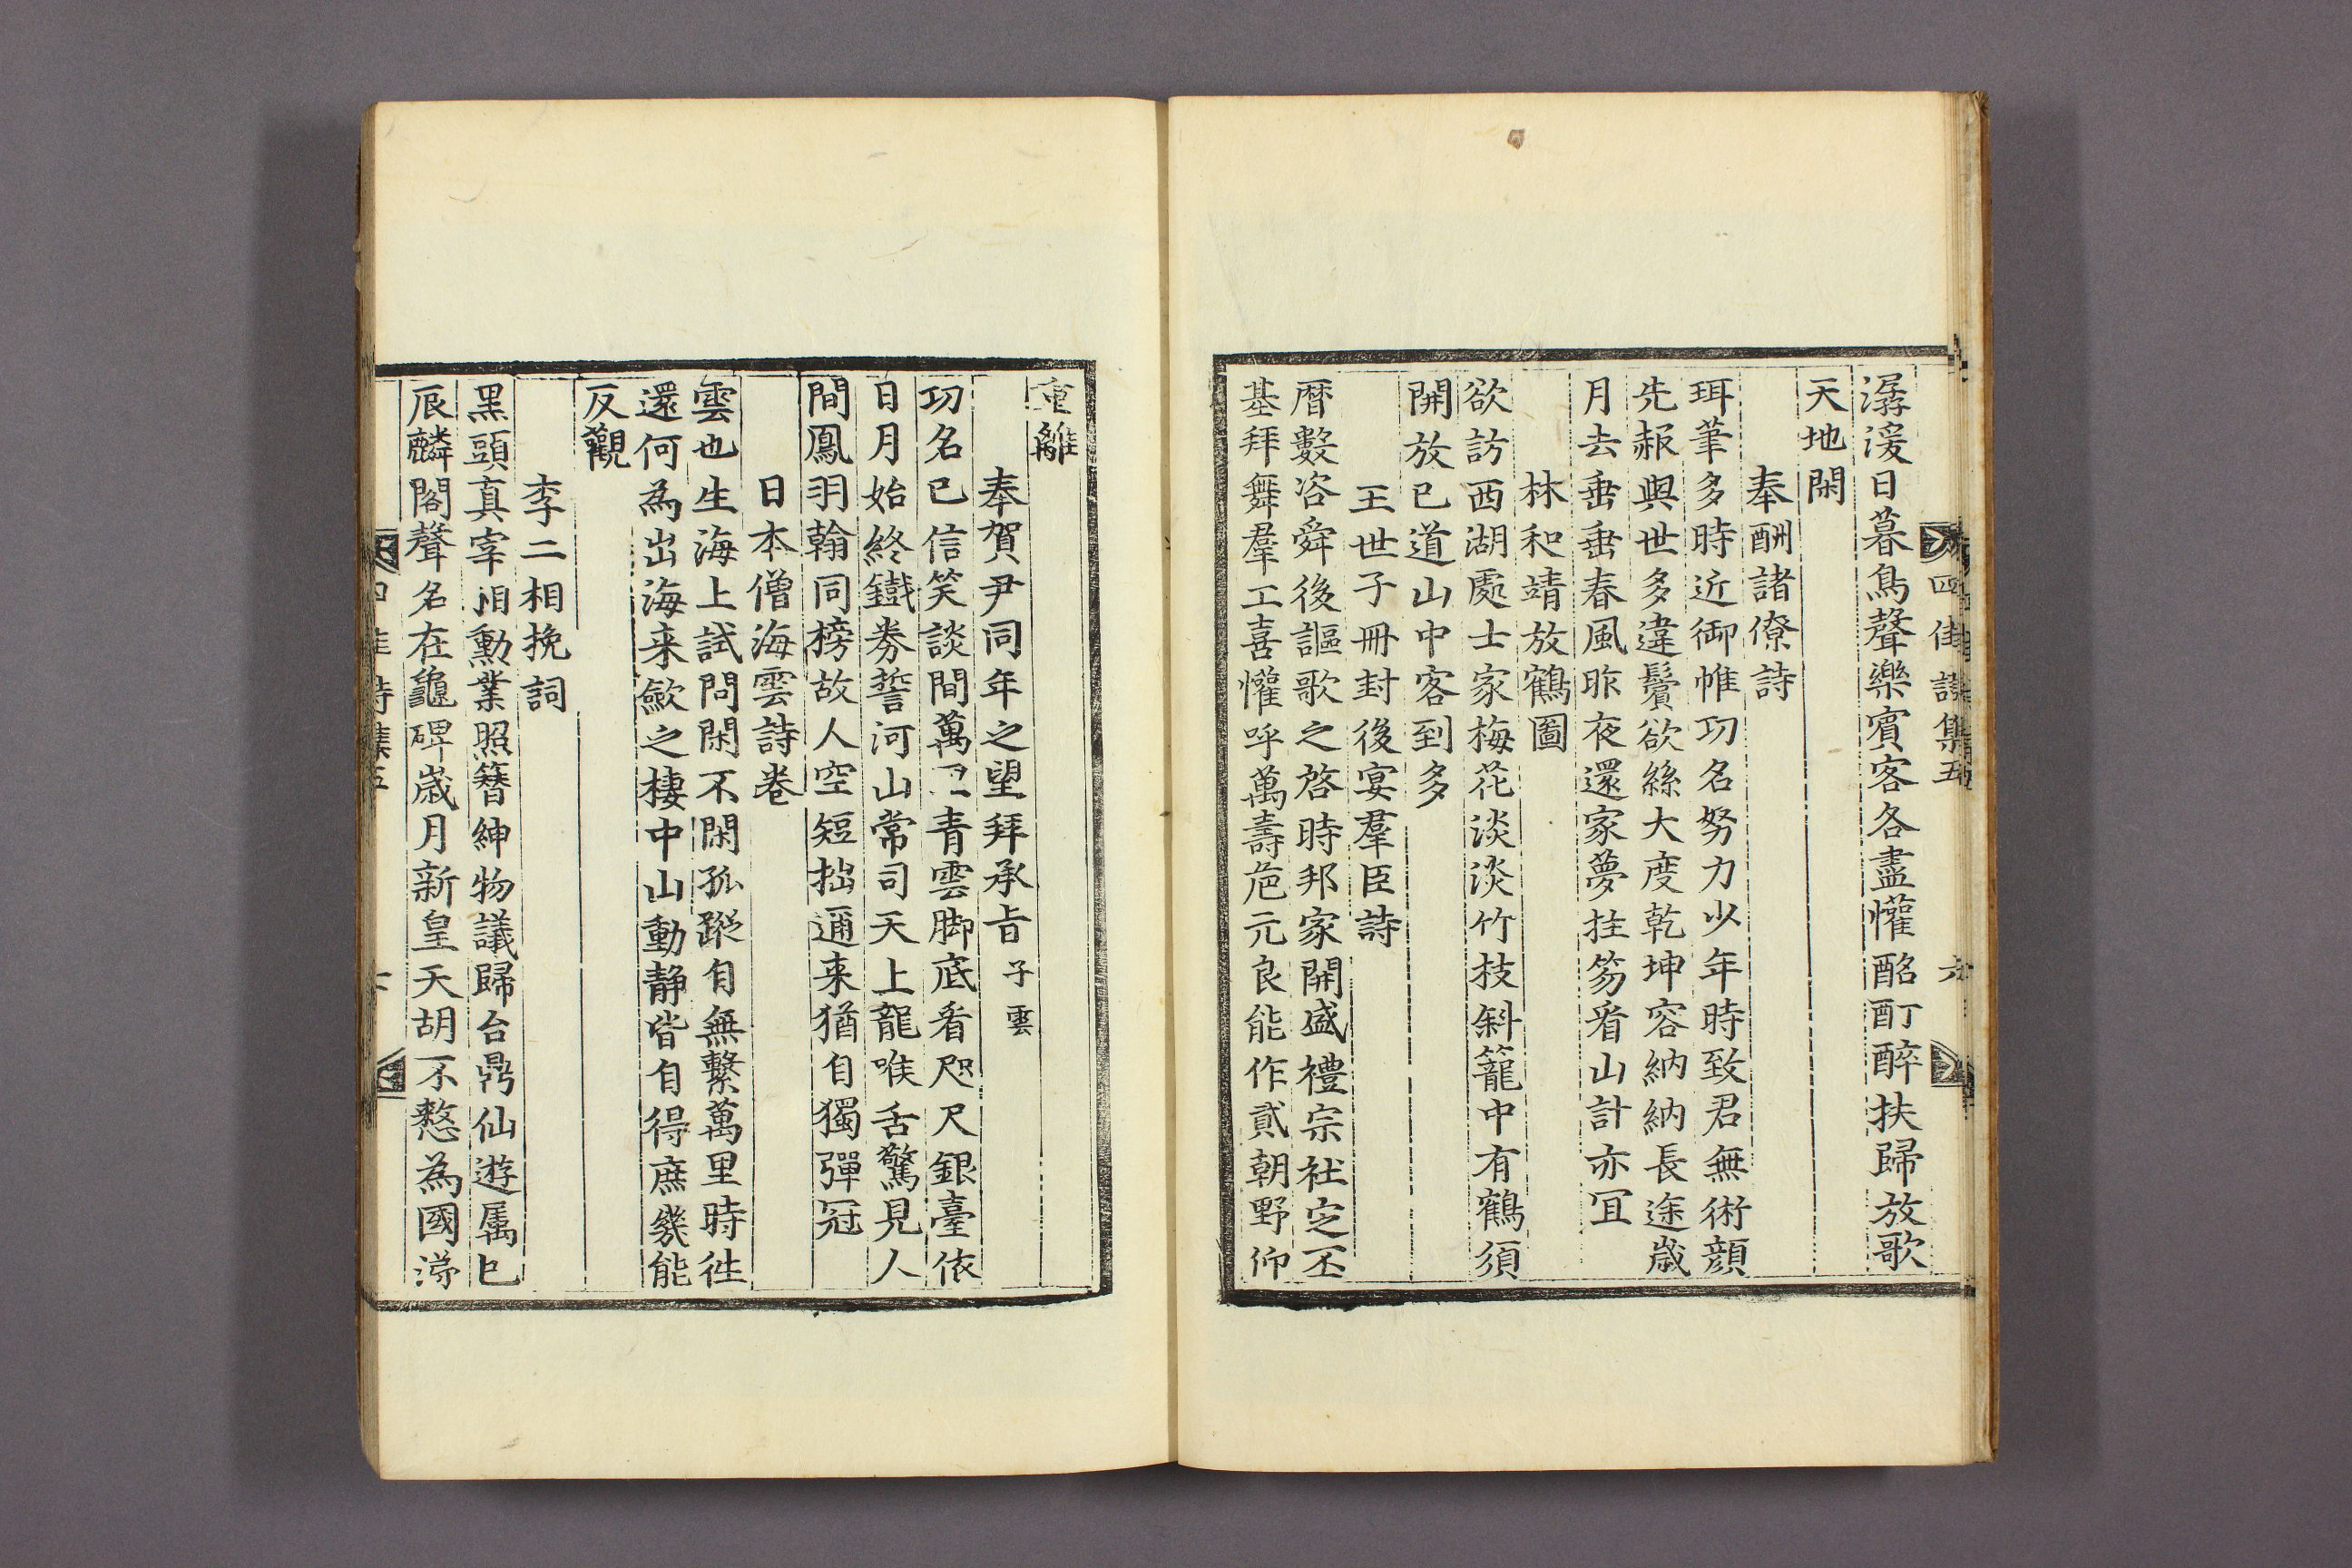 四佳詩集五
潺湲日暮鳥聲樂賓客各盡懽酩酊醉扶歸放歌
天地閑
奉酬諸僚詩
珥筆多時近御帷功名努力少年時致君無術顔
先赧與世多違鬢欲絲大度乾坤容納納長途歲
月去垂垂春風昨夜還家夢拄笏看山計亦冝
林和靖放鶴圖
欲訪西湖處士家梅花淡淡竹枝斜籠中有鶴須
開放已道山中客到多
王世子冊封後宴羣臣詩
曆數咨舜後謳歌之啓時邦家開盛禮宗社定丕
基拜舞羣工喜懽呼萬壽巵元良能作貳朝野仰
重離
奉賀尹同年之望拜承旨 子雲
功名已信笑談間萬里青雲脚底看咫尺銀臺依
日月始終鐵券誓河山常司天上龍喉舌驚見人
間鳳羽翰同榜故人空短拙邇来猶自獨彈冠
日本僧海雲詩卷
雲也生海上試問閑不閑孤蹤自無繫萬里時徃
還何為出海来歛之棲中山動静皆自得庶幾能
反觀
李二相挽詞
黑頭真宰相勳業照簪紳物議歸台鼎仙遊属巳
辰麟閣聲名在龜碑歲月新皇天胡不憖為國涕